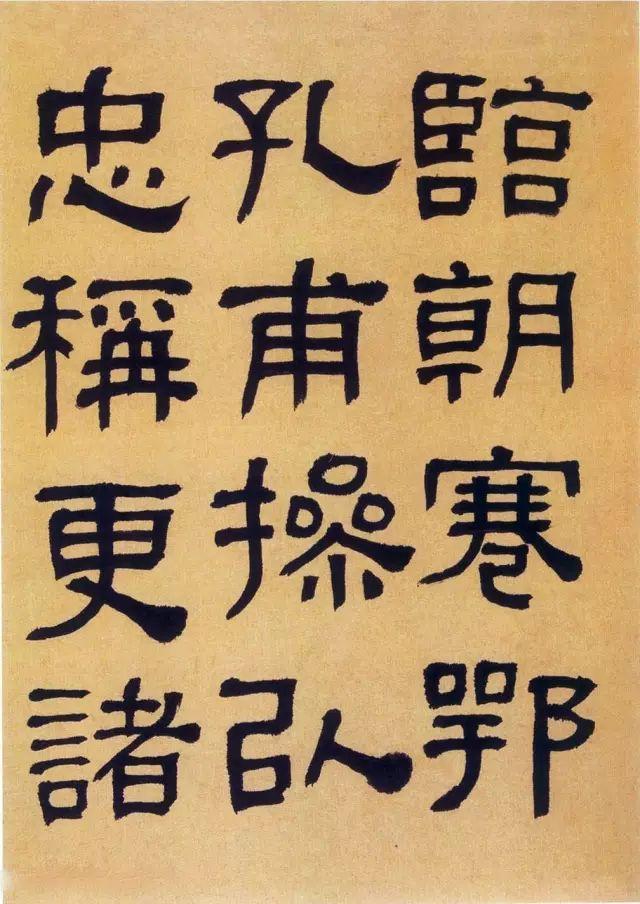 臨朝寋鄂
孔甫操以
忠稱更諸